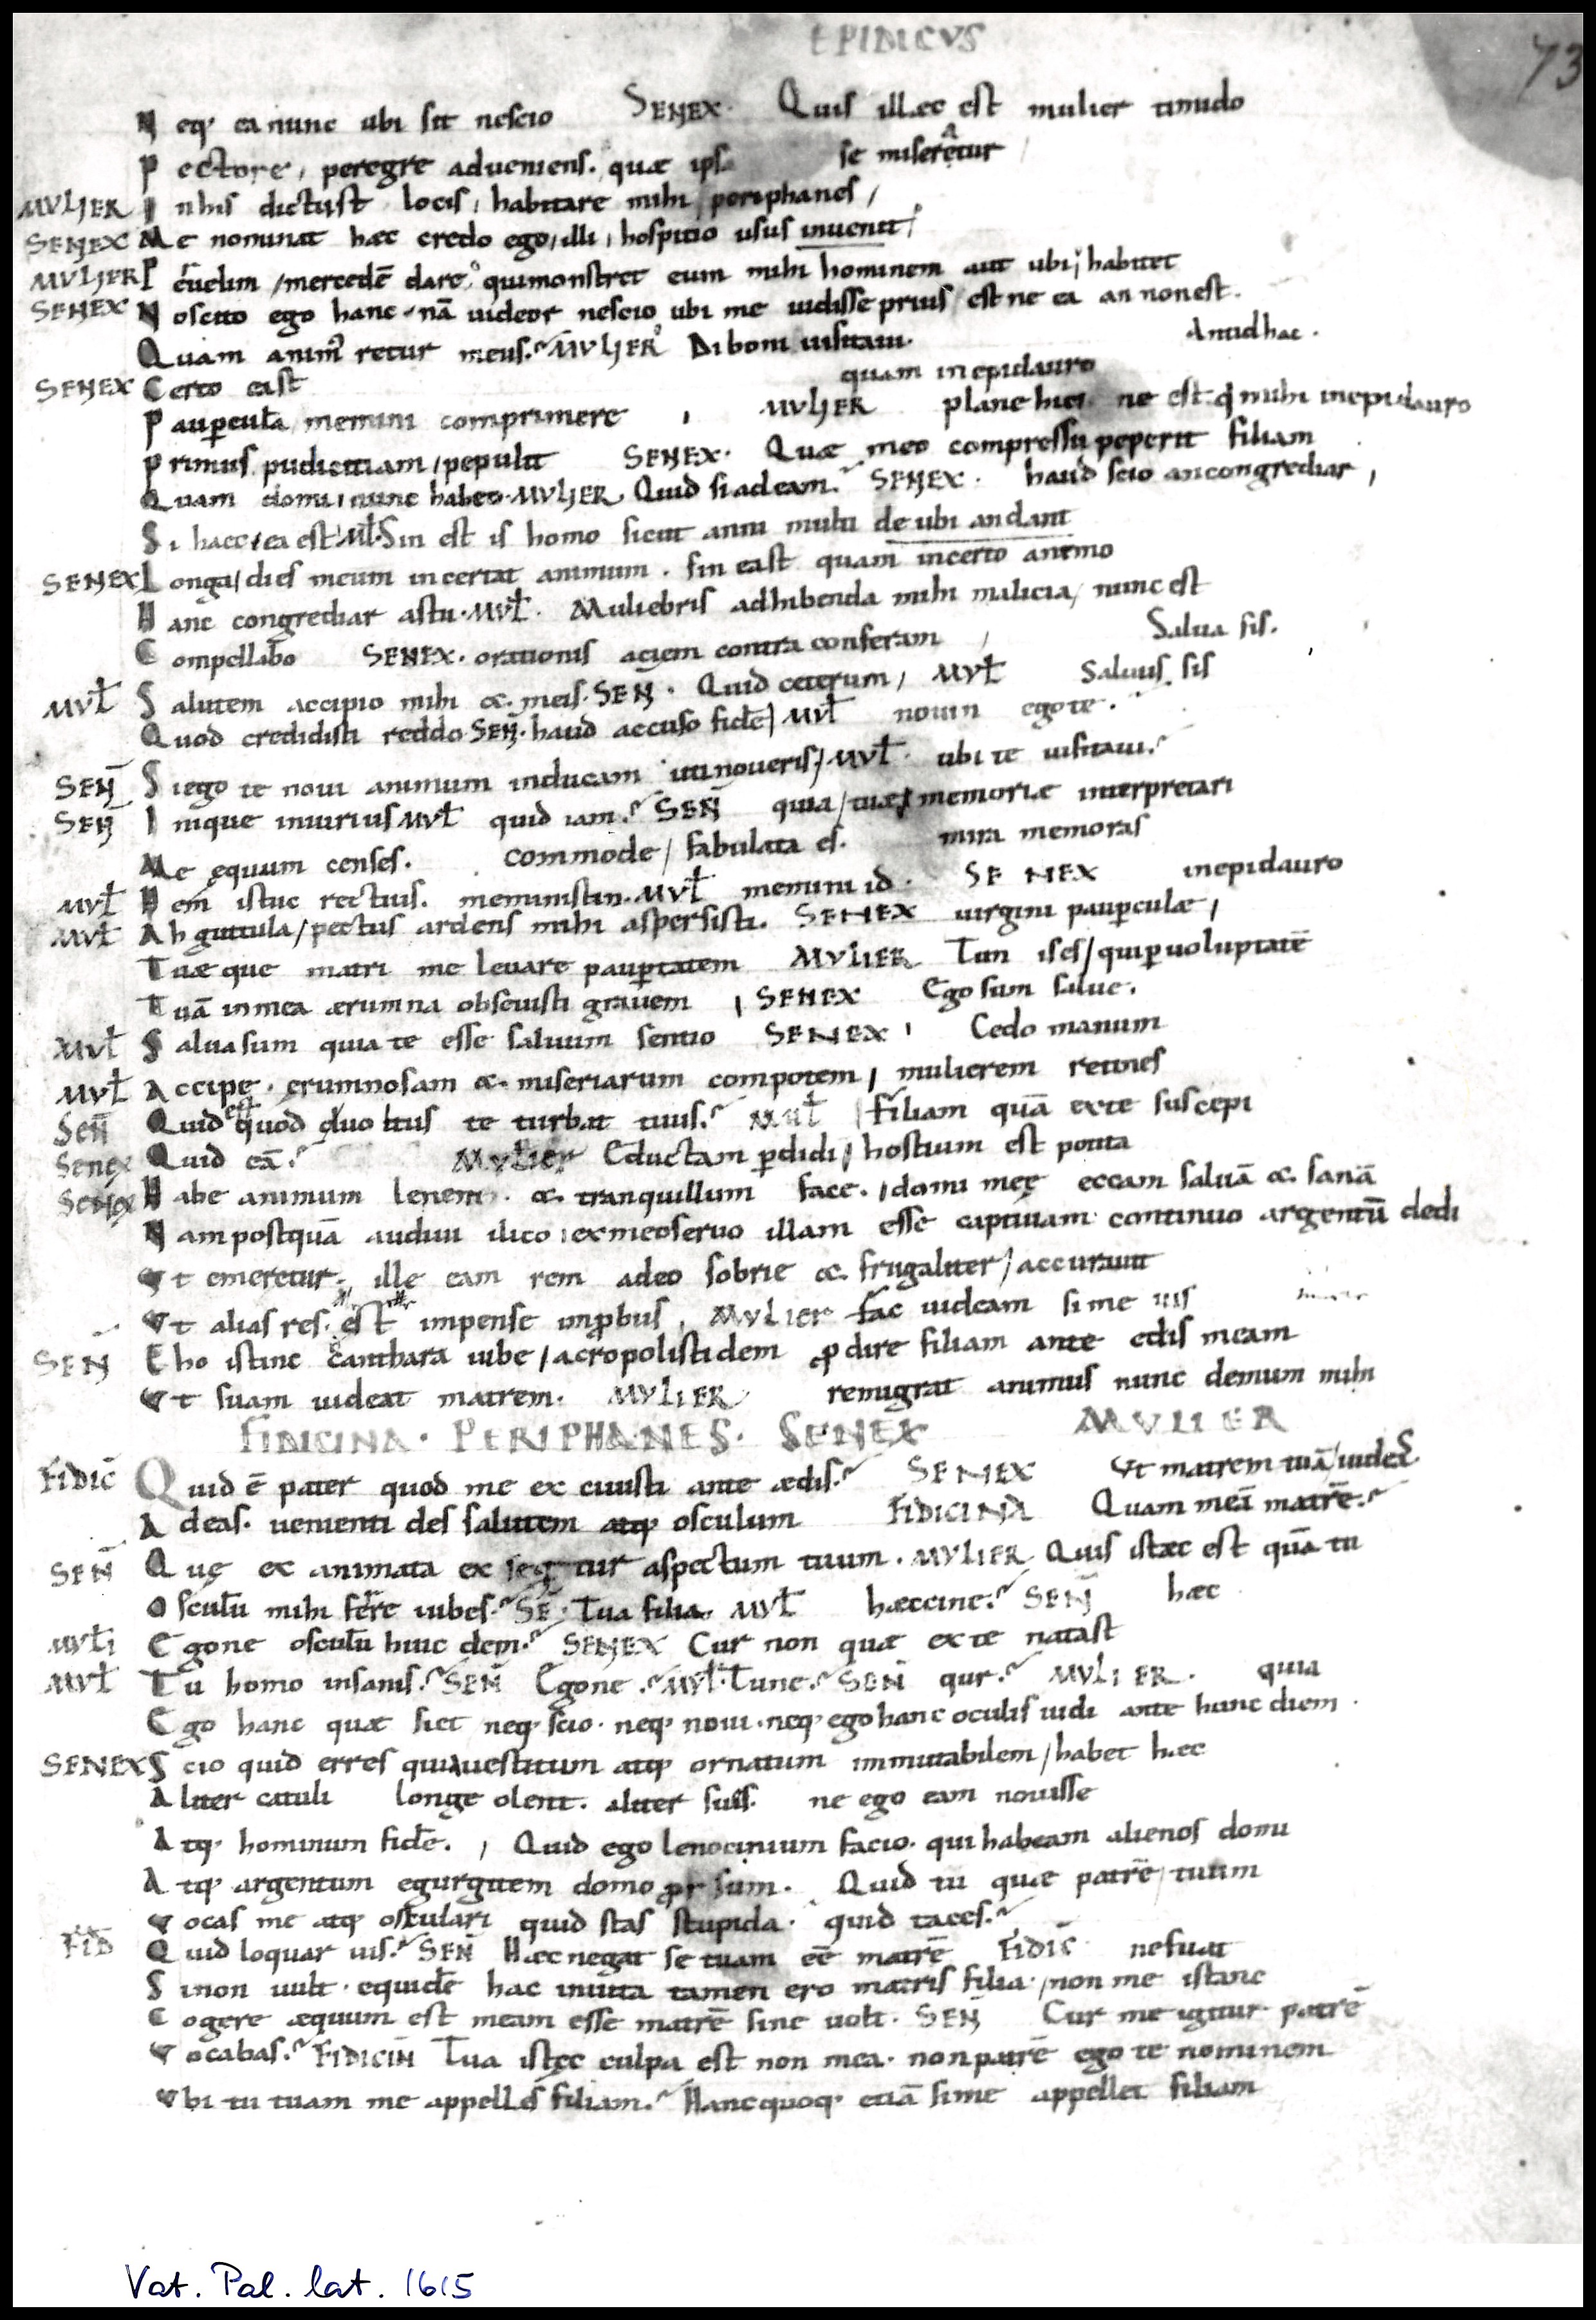 EPIDICVS
73
Neq; ea nunc ubi sit nescio SENEX. Quis illaec est mulier timido
Pectore, peregre adueniens. quæ ips se miseretur
MVLIER Inhis dictust locis, habitare mihi periphanes,
SENEX Me nominat hæc credo ego, illi, hospitio usus inuenit,
MVLIER Peruelim, mercedē dare, quimonstret eum mihi hominem aut ubi, habitet
SENEX Noscito ego hanc. nā uideor nescio ubi me uidisse prius, est ne ea an nonest.
Quam animꝰ retur meus. MVLIER Di boni uisitaui. Antidhac.
SENEX Certo east quam inepidauro
Paupcula, memini comprimere, MVLIER plane hic ne est. q mihi inepidauro
Primus, pudicitiam, pepulit SENEX. Quæ meo compressu peperit filiam
Quam domi, nunc habeo. MVLIER Quid siadeam. SENEX. haud scio ancongrediar,
Si haec, ea est MVL. Sin est is homo sicut anni multi de ubi andant
SENEX Longa, dies meum incertat animum. sin east quam incerto animo
Hanc congrediar astu. MVL. Muliebris adhibenda mihi malicia, nunc est
Compellabo SENEX. orationis aciem contra conferam, Salua sis.
MVL Salutem accipio mihi &. meis. SEN. Quid ceterum, MVL Saluus sis
Quod credidisti reddo SEN. haud accuso fidē, MVL nouin ego te.
SEN Siego te noui animum inducam uti noueris, MVL. ubi te uisitaui.
SEN Inique iniurius MVL quid iam. SEN quia, tuæ, memoriæ interpretari
Me ęquum censes. commode, fabulata es. mira memoras
MVL Hem istuc rectius. meministin. MVL memini id. SENEX inepidauro
MVL Ah guttula, pectus ardens mihi aspersisti. SENEX uirgini paupculæ,
Tuæque matri me leuare paupertatem MVLIER Tun ises, quip uoluptatē
Tuā inmea ærumna obseuisti grauem, SENEX Ego sum salue.
MVL Saluasum quia te esse saluum sentio SENEX, Cedo manum
MVL Accipe. ęrumnosam &. miseriarum compotem, mulierem retines
SEN Quid est quod duo ltus te turbat tuus. MVL Filiam quā exte suscepi
Senex Quid eā. MVLIER Eductam pdidi, hostium est potita
Senex Habe animum lenem. &. tranquillum face. domi meę eccam saluā &. sanā
Nam postquā audiui ilico, exmeoseruo illam esse captiuam continuo argentū dedi
Vt emeretur. ille eam rem adeo sobrie &. frugaliter, accurauit
Vt alias res. est impense improbus, MVLIER fac uideam si me uis
SEN Eho istinc canthara iube, acropolistidem pdire filiam ante edis meam
Vt suam uideat matrem. MVLIER remigrat animus nunc demum mihi
FIDICINA. PERIPHANES. SENEX MVLIER
FIDIC Quid ē pater quod me ex ciuisti ante ædis. SENEX Vt matrem tuā, uideas
Adeas. uenienti des salutem atq; osculum FIDICINA Quam meā matrē.
SEN Quę ex animata ex seq tur aspectum tuum. MVLIER Quis istæc est quā tu
Osculū mihi ferre iubes. SE. Tua filia. MVL hæccine. SEN hæc
MVLI Egone osculū huic dem. SENEX Cur non quæ ex te natast
MVL Tu homo insanis. SEN Egone. MVL. Tune. SEN qur. MVLIER. quia
Ego hanc quæ siet neq; scio. neq; noui. neq; ego hanc oculis uidi ante hunc diem.
SENEX Scio quid erres quia uestitum atq; ornatum immutabilem, habet hæc
Aliter catuli longe olent. aliter suis. ne ego eam nouisse
Atq; hominum fidē., Quid ego lenocinium facio. qui habeam alienos domi
Atq; argentum egurgitem domo prsum. Quid tu quæ patrē, tuum
Vocas me atq; osculari quid stas stupida. quid taces.
FID Quid loquar uis. SEN Hæc negat se tuam eē matrē FIDIC nefuat
Sinon uult. equidē hac inuita tamen ero matris filia. non me istanc
Cogere æquum est meam esse matrē sine uolt. SEN Cur me igitur patrē
Vocabas. FIDICIN Tua istęc culpa est non mea. nonpatrē ego te nominem
Vbi tu tuam me appelles filiam. Hancquoq; etiā sime appellet filiam
Vat. Pal. lat. 1615